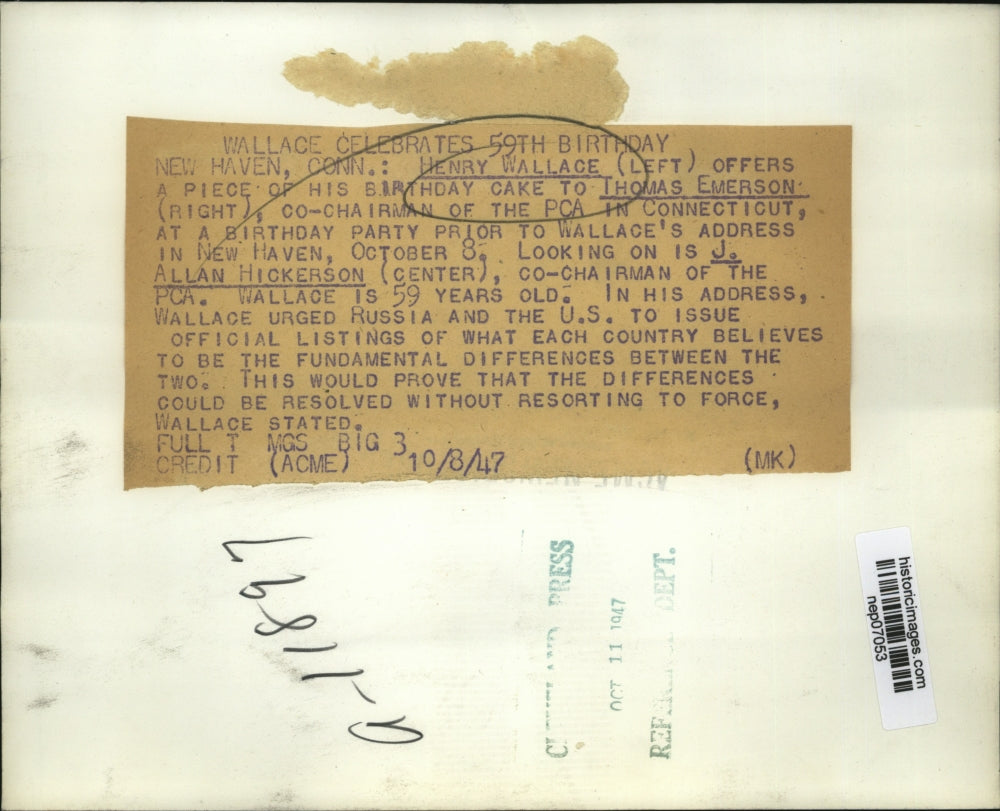 WALLACE CELEBRATES 59TH BIRTHDAY
NEW HAVEN, CONN.: HENRY WALLACE (LEFT) OFFERS
A PIECE OF HIS BIRTHDAY CAKE TO THOMAS EMERSON
(RIGHT), CO-CHAIRMAN OF THE PCA IN CONNECTICUT,
AT A BIRTHDAY PARTY PRIOR TO WALLACE'S ADDRESS
IN NEW HAVEN, OCTOBER 8. LOOKING ON IS J.
ALLAN HICKERSON (CENTER), CO-CHAIRMAN OF THE
PCA. WALLACE IS 59 YEARS OLD. IN HIS ADDRESS,
WALLACE URGED RUSSIA AND THE U.S. TO ISSUE
OFFICIAL LISTINGS OF WHAT EACH COUNTRY BELIEVES
TO BE THE FUNDAMENTAL DIFFERENCES BETWEEN THE
TWO. THIS WOULD PROVE THAT THE DIFFERENCES
COULD BE RESOLVED WITHOUT RESORTING TO FORCE,
WALLACE STATED.
FULL T MGS BIG 3
CREDIT (ACME) 10/8/47 (MK)
a-11897
PRESS
OCT 11 1947
DEPT.
historicimages.com
nep07053